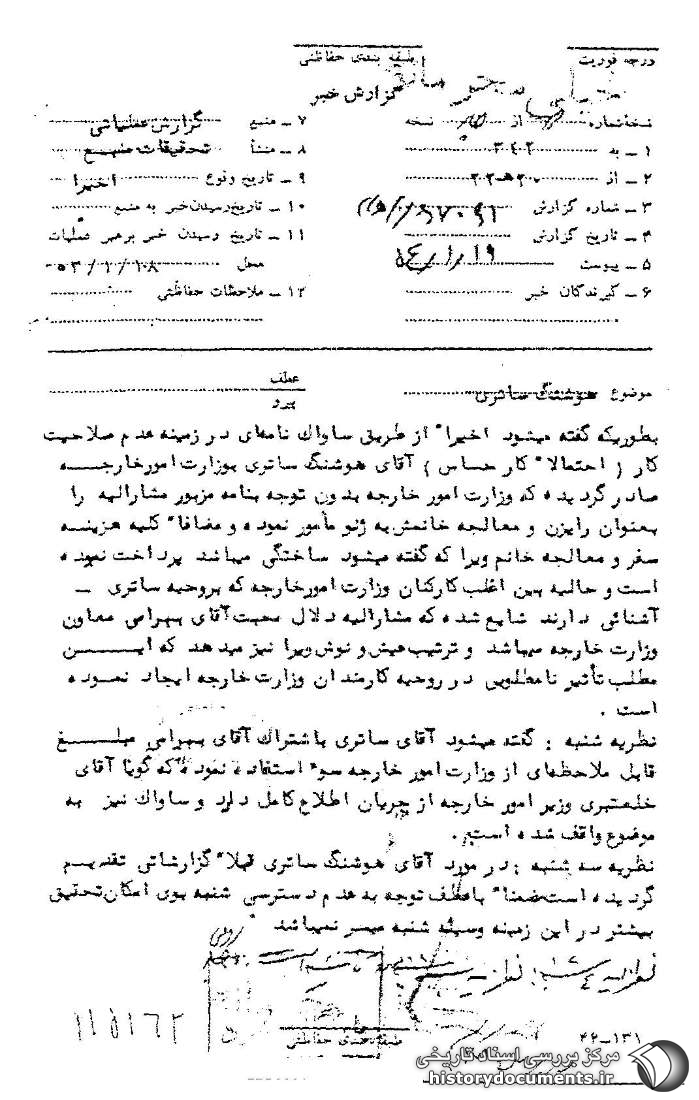 درجه فوریت
طبقه بندی حفاظتی
گزارش خبر
نسخه شماره از نسخه
۱ ـ به ۳۴۲
۲ ـ از ۲۰ ه ۲۲
۳ ـ شماره گزارش
۴ ـ تاریخ گزارش
۵ ـ پیوست ۵۴/۱/۱۹
۶ ـ گیرندگان خبر
۷ ـ منبع گزارش عملیاتی
۸ ـ منشأ تحقیقات منبع
۹ ـ تاریخ وقوع اخیرا
۱۰ ـ تاریخ رسیدن خبر به منبع
۱۱ ـ تاریخ رسیدن خبر برهبر عملیات
محل ۵۳/۱/۱۸
۱۲ ـ ملاحظات حفاظتی
موضوع هوشنگ ساتری
عطف
پیرو
بطوریکه گفته میشود اخیرا" از طریق ساواك نامه‌ای در زمینه عدم صلاحیت
کار ( احتمالا" کار حساس ) آقای هوشنگ ساتری بوزارت امورخارجـــه
صادر گردیده که وزارت امور خارجه بدون توجه بنامه مزبور مشارالیه را
بعنوان رایزن و معالجه خانمش به ژنو مأمور نموده و مضافا" کلیه هزینـــه
سفر و معالجه خانم ویرا که گفته میشود ساختگی میباشد پرداخت نموده
است و حالیه بین اغلب کارکنان وزارت امورخارجه که بروحیه ساتری ـ
آشنائی دارند شایع شده که مشارالیه دلال محبت آقای بهرامی معاون
وزارت خارجه میباشد و ترتیب عیش و نوش ویرا نیز میدهد که ایـــن
مطلب تأثیر نامطلوبی در روحیه کارمندان وزارت خارجه ایجاد نمـوده
است .
نظریه شنبه : گفته میشود آقای ساتری باشتراك آقای بهرامی مبلـــغ
قابل ملاحظه‌ای از وزارت امور خارجه سوء استفاده نموده که گویا آقای
خلعتبری وزیر امور خارجه از جریان اطلاع کامل دارد و ساواك نیز به
موضوع واقف شده است .
نظریه سه شنبه : در مورد آقای هوشنگ ساتری قبلا" گزارشاتی تقدیـم
گردیده است ضمنا" باعطف توجه به عدم دسترسی شنبه بوی امکان تحقیق
بیشتر در این زمینه وسیله شنبه میسر نمیباشد
۱۱۵۱۶۲
طبقه بندی حفاظتی
۴۲-۱۳۱
مرکز بررسی اسناد تاریخی
historydocuments.ir